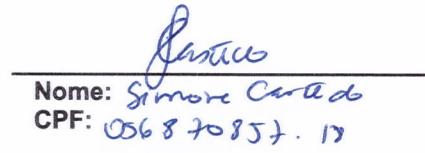 Nome: Simone Castedo
CPF: 056870857.18